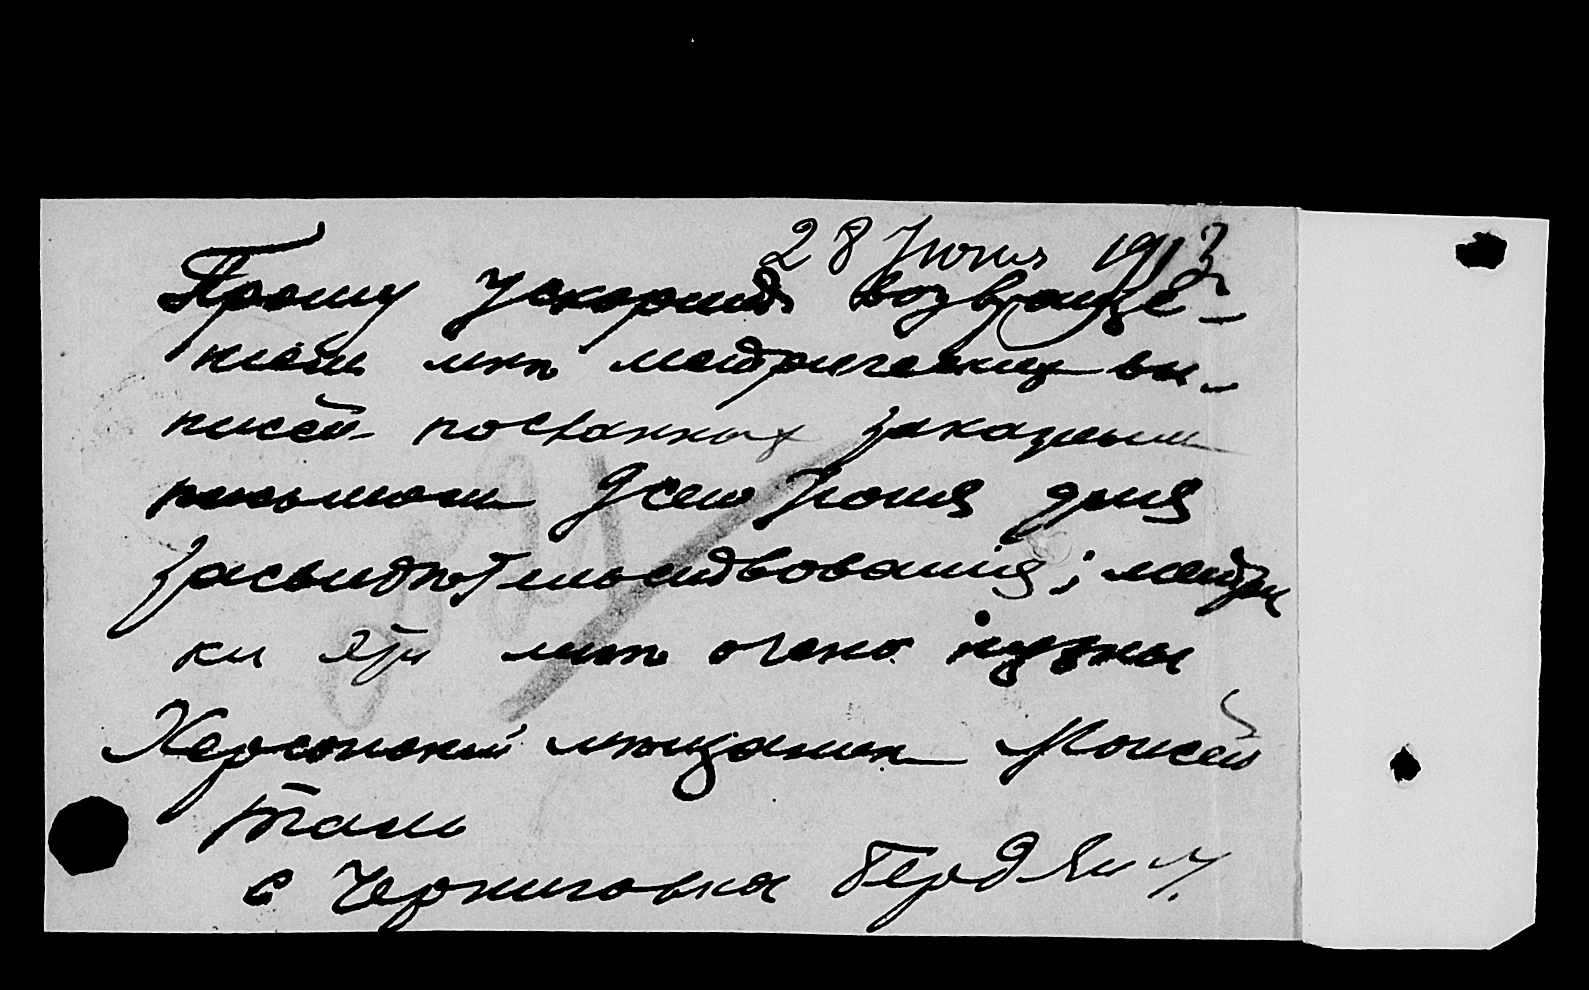 28 Июня 1913
Прошу ускорить возвраще-
ніем мнѣ метрических вы-
писей посланных заказным
письмом 9 сего Июня для
засвидѣтельствованія; метри
ки эти мнѣ очень нужны
Херсонскій мѣщанин Моисей
Таль
с Черниговка Бердян у.